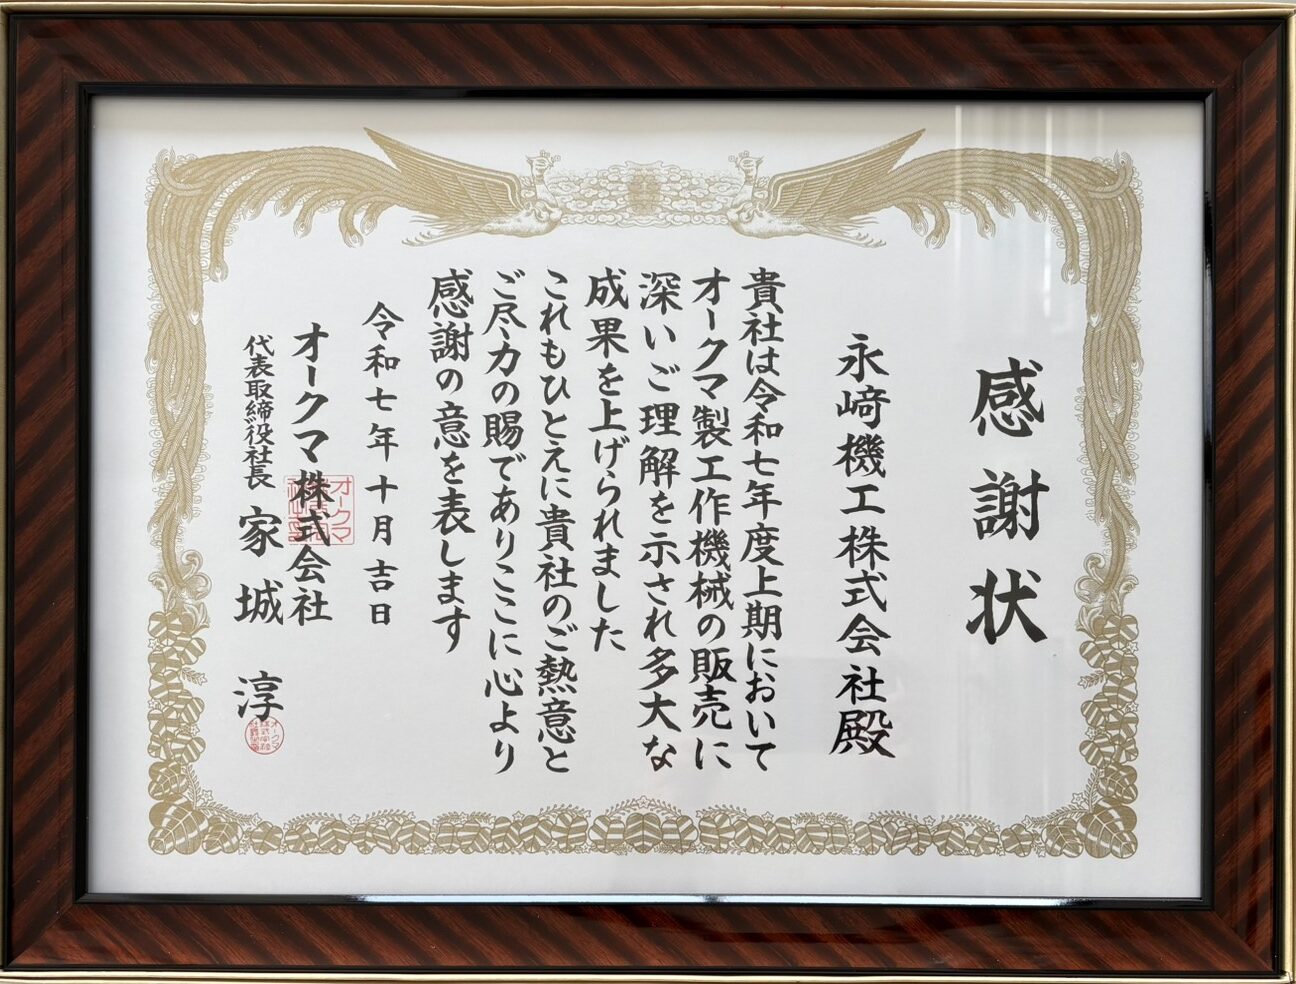 感謝状
永﨑機工株式会社殿
貴社は令和七年度上期において
オークマ製工作機械の販売に
深いご理解を示され多大な
成果を上げられました
これもひとえに貴社のご熱意と
ご尽力の賜でありここに心より
感謝の意を表します
令和七年十月吉日
オークマ株式会社
代表取締役社長 家城 淳